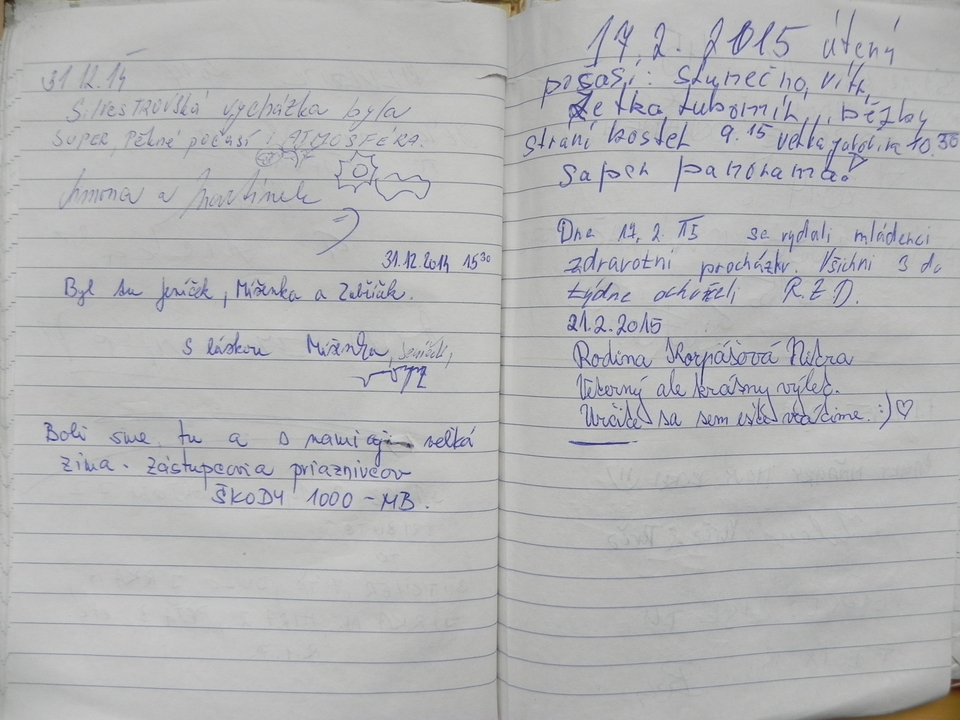 31.12.14
SILVESTROVSKÁ vycházka byla
SUPER, Pěkné počasí i ATMOSFÉRA.
a Martínek
31.12.2014 15 30
Byl tu Jeníček, Míšenka a Zubíčák.
S láskou Míšenka, Jeníček,
Boli sme tu a s nami aj velká
zima. Zástupcovia priaznivcov
ŠKODY 1000-MB.
17.2.2015 úterý
počasí: slunečno, vítr,
Zetka Lubomír,
strání kostel 9.15 velka javorina 10.30
super panorama!
Dne 17.2.15 se vydali mládenci
zdravotní procházku. Všichni 3 do
týdne ochořeli R.Z.D.
21.2.2015
Rodina Korpášová Nitra
Veterný ale krásny výlet.
Určite sa sem ešte vrátime. :) ♡